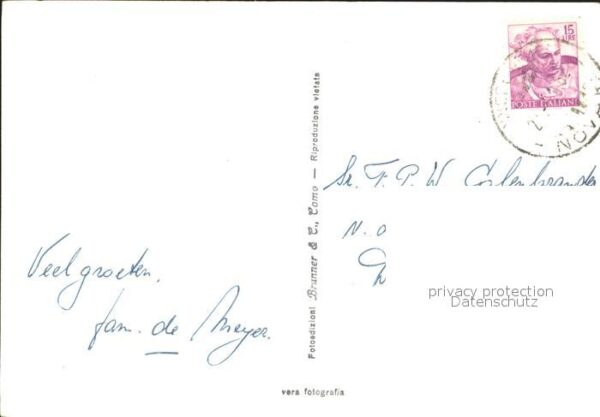 15
LIRE
POSTE ITALIANE
NOVARA
Fotoedizioni Brunner & C., Como — Riproduzione vietata
Veel groeten.
fam. de Meyer.
Sr. F. P. W.
N. o
privacy protection
Datenschutz
vera fotografia